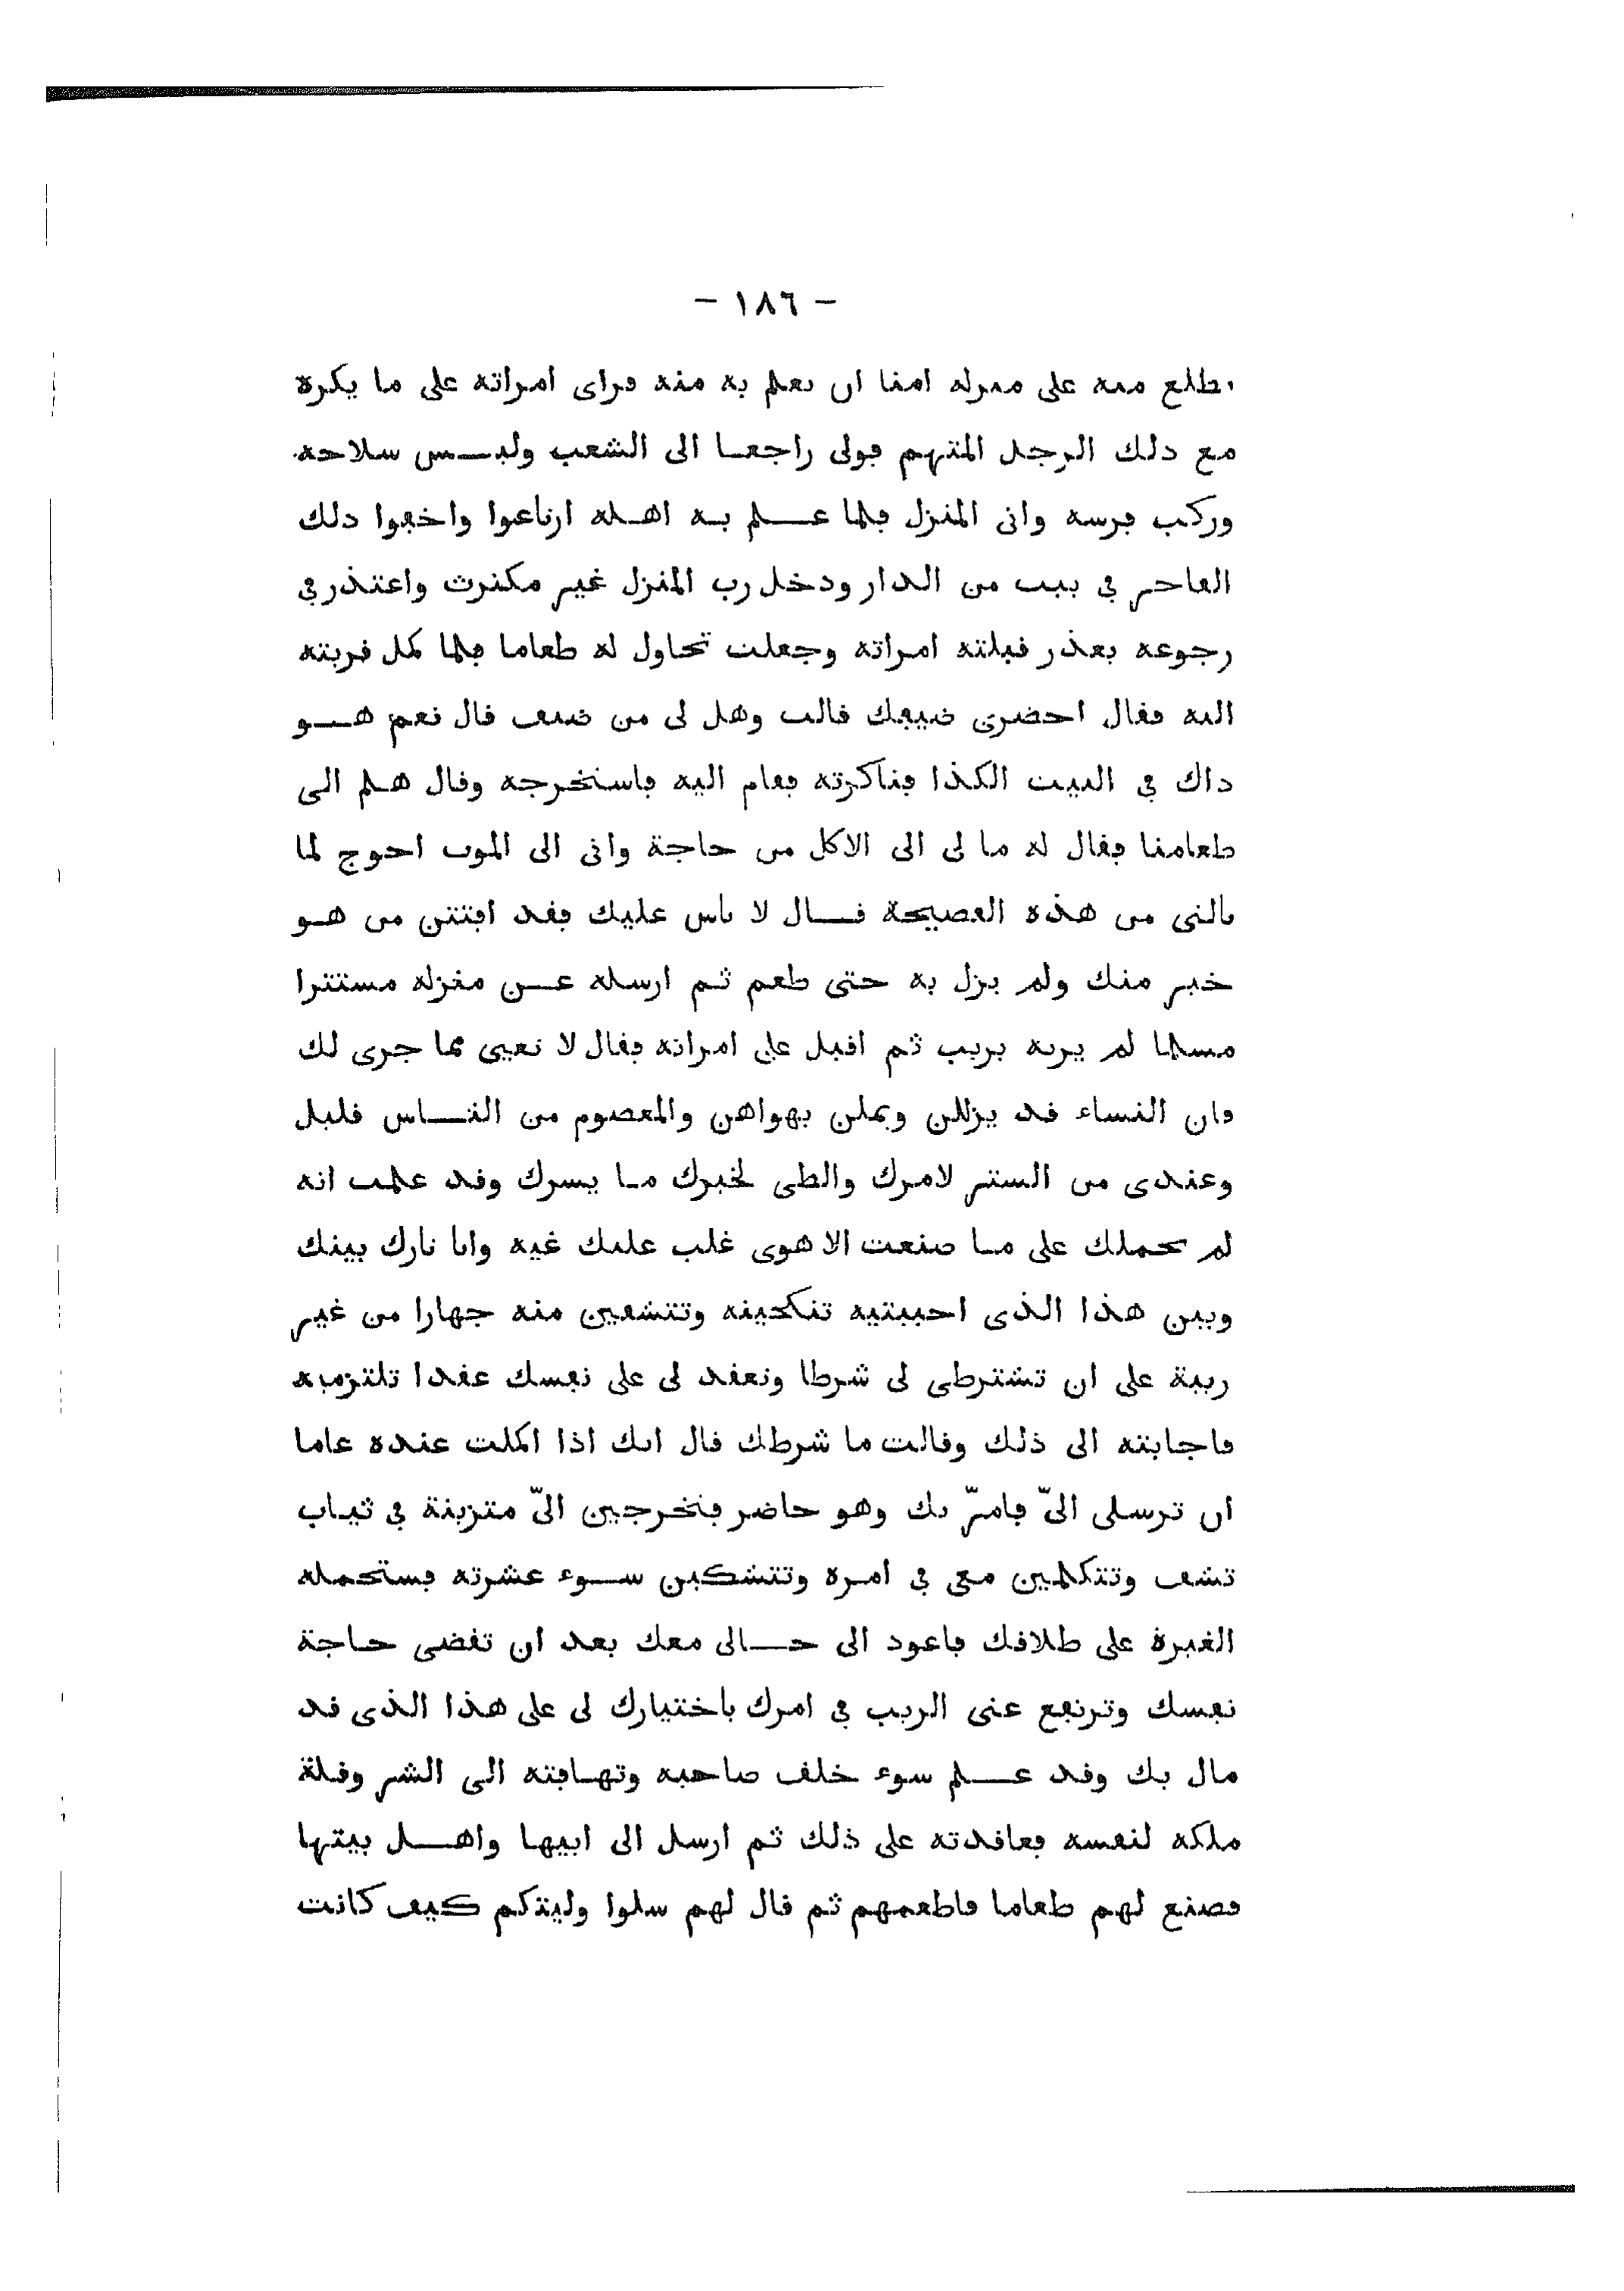 - ١٨٦ -
يطلع منه على منزله امنا ان يعلم به منه فراى امراته على ما يكره
مع ذلك الرجل المتهم فولى راجعا الى الشعب ولبس سلاحه
وركب فرسه واتى المنزل فلما علم به اهله ارتاعوا واخفوا ذلك
الفاجر في بيت من الدار ودخل رب المنزل غير مكترث واعتذر في
رجوعه بعذر قبلته امراته وجعلت تحاول له طعاما فلما كمل قربته
اليه فقال احضرى ضيفك قالت وهل لى من ضيف قال نعم هو
ذاك في البيت الكذا فناكرته فقام اليه فاستخرجه وقال هلم الى
طعامنا فقال له ما لى الى الاكل من حاجة وانى الى الموت احوج لما
نالنى من هذه الفضيحة قال لا باس عليك فقد افتتن من هو
خير منك ولم يزل به حتى طعم ثم ارسله عن منزله مستترا
مسلما لم يربه بريب ثم اقبل على امراته فقال لا تعيى مما جرى لك
فان النساء قد يزللن ويملن بهواهن والمعصوم من الناس قليل
وعندى من الستر لامرك والطى لخبرك ما يسرك وقد علمت انه
لم يحملك على ما صنعت الا هوى غلب عليك غيه وانا تارك بينك
وبين هذا الذى احببتيه تنكحينه وتتشفين منه جهارا من غير
ريبة على ان تشترطى لى شرطا وتعقد لى على نفسك عقدا تلتزميه
فاجابته الى ذلك وقالت ما شرطك قال انك اذا اكملت عنده عاما
ان ترسلى الىّ فامرّ بك وهو حاضر فتخرجين الىّ متزينة في ثياب
تشف وتتكلمين معى في امره وتتشكين سوء عشرته فستحمله
الغيرة على طلاقك فاعود الى حالى معك بعد ان تقضى حاجة
نفسك وترتفع عنى الريب في امرك باختيارك لى على هذا الذى قد
مال بك وقد علم سوء خلق صاحبه وتهافته الى الشر وقلة
ملكه لنفسه فعاقدته على ذلك ثم ارسل الى ابيها واهل بيتها
فصنع لهم طعاما فاطعمهم ثم قال لهم سلوا وليتكم كيف كانت